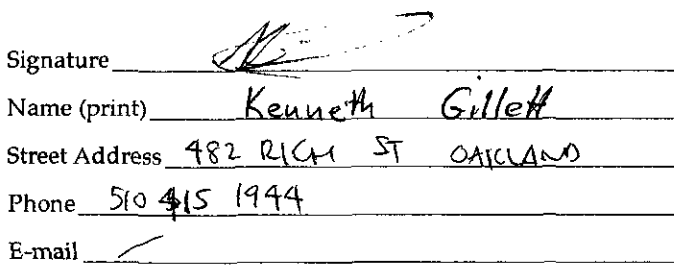 Signature
Name (print) Kenneth Gillett
Street Address 482 RICH ST OAKLAND
Phone 510 415 1944
E-mail